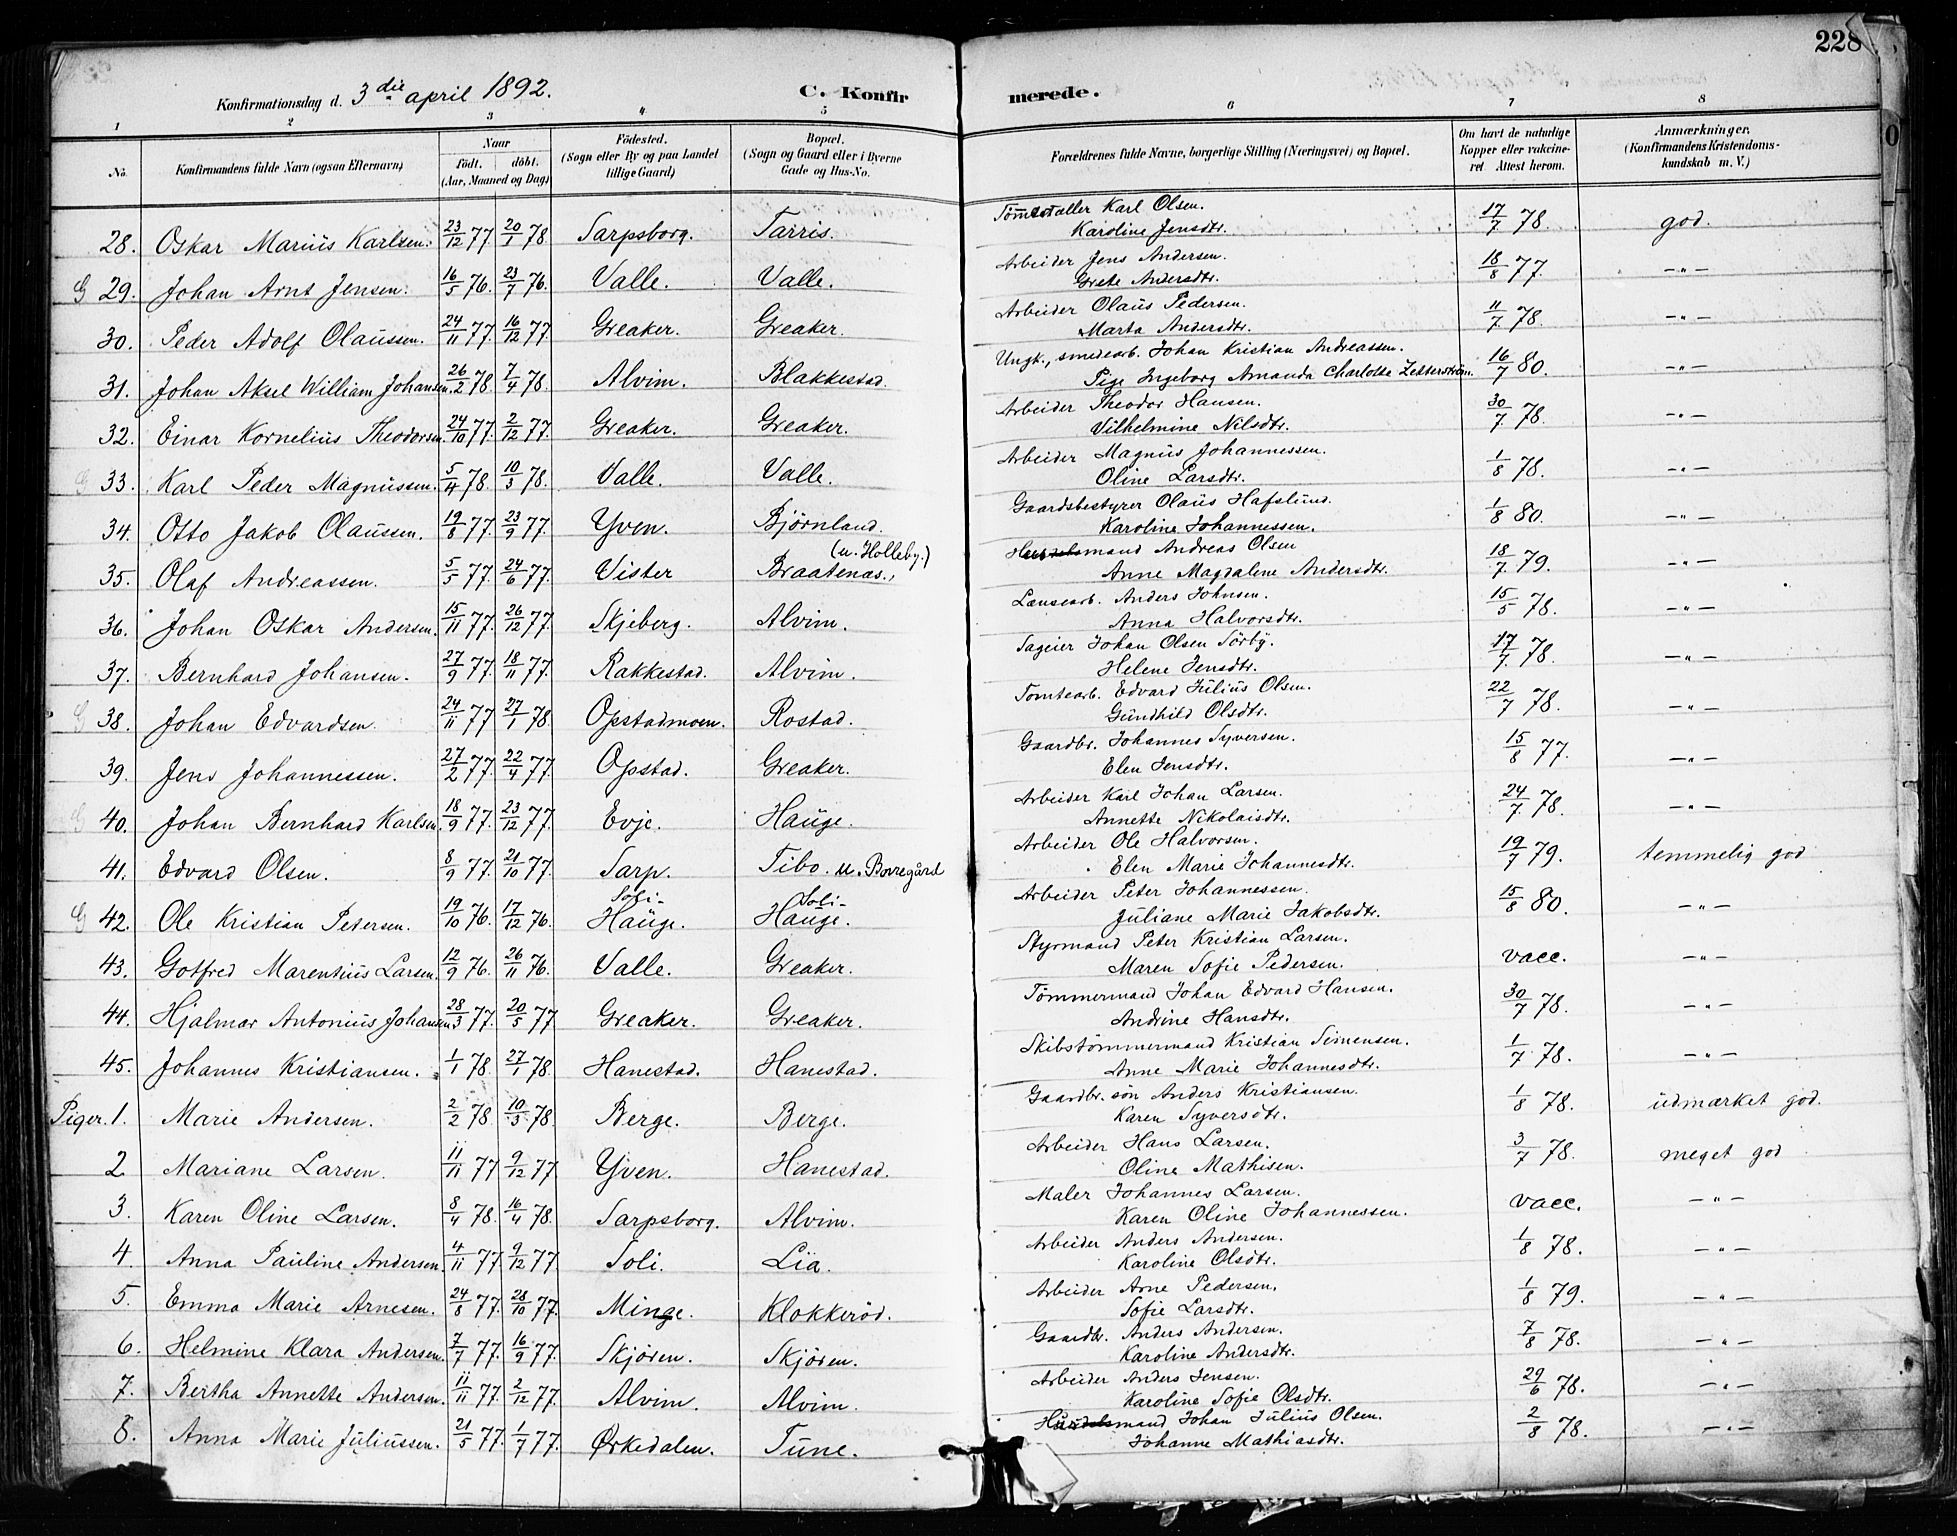 228
Konfirmationsdag d. 3die april 1892. C. Konfirmerede.
1 2 3 4 5 6 7 8
No. Konfirmandens fulde Navn (ogsaa Efternavn) Naar Födt. döbt. (Aar, Maaned og Dag) Födested. (Sogn eller By og paa Landet tillige Gaard) Bopæl. (Sogn og Gaard eller i Byerne Gade og Hus-No. Forældrenes fulde Navne, borgerlige Stilling (Næringsvei) og Bopæl. Om havt de naturlige Kopper eller vaccineret Attest herom. Anmærkninger. (Konfirmandens Kristendomskundskab m. V.)
28. Oskar Marius Karlsen. 23/12 77 20/1 78 Sarpsborg. Tarris. Karl Olsen. Karoline Jensdtr. 17/7 78. god.
G 29. Johan Arnt Jensen. 16/5 76. 23/7 76. Valle. Valle. Arbeider Jens Andersen. Grete Andersdtr. 18/8 77. -"-
30. Peder Adolf Olaussen. 24/11 77. 16/12 77. Greaker. Greaker. Arbeider Olaus Pedersen. Marta Andersdtr. 11/7 78. -"-
31. Johan Aksel William Johansen. 26/2 78 7/4 78. Alvim. Blakkestad. Ungk., smedearb. Johan Kristian Andreassen. Pige Ingeborg Amanda Charlotte Zetterström. 16/7 80. -"-
32. Einar Kornelius Theodorsen. 24/10 77. 2/12 77. Greaker. Greaker. Arbeider Theodor Hansen. Vilhelmine Nilsdtr. 30/7 78. -"-
G 33. Karl Peder Magnussen. 5/4 78. 10/3 78. Valle. Valle. Arbeider Magnus Johannessen. Oline Larsdtr. 1/8 78. -"-
34. Otto Jakob Olaussen. 19/8 77. 23/9 77. Yven. Björnland. Gaardsbestyrer Olaus Hafslund. Karoline Johannessen. 1/8 80. -"-
35. Olaf Andreassen. 5/5 77. 24/6 77. Vister (u. Holleby.) Braatenas., Husmand Andreas Olsen Anne Magdalene Andersdtr. 18/7 79. -"-
36. Johan Oskar Andersen. 15/11 77. 26/12 77. Skjeberg. Alvim. Lænsearb. Anders Johnsen. Anna Halvorsdtr. 15/5 78. -"-
37. Bernhard Johansen. 27/9 77. 18/11 77. Rakkestad. Alvim. Sageier Johan Olsen Sörby. Helene Jensdtr. 17/7 78. -"-
G 38. Johan Edvardsen. 24/11 77 27/1 78. Opstadmoen. Rostad. Tomtearb. Edvard Julius Olsen. Gunhild Olsdtr. 22/7 78. -"-
39. Jens Johannessen. 27/2 77. 22/4 77. Opstad. Greaker. Gaardbr. Johannes Syversen. Elen Jensdtr. 15/8 77. -"-
G 40. Johan Bernhard Karlsen. 18/9 77. 23/12 77. Evje. Hauge. Arbeider Karl Johan Larsen. Annette Nikolaisdtr. 24/7 78. -"-
41. Edvard Olsen. 8/9 77. 21/10 77. Sarp. Tibo. u. Borregård Arbeider Ole Halvorsen. Elen Marie Johannesdtr. 19/7 79. temmelig god
G 42. Ole Kristian Petersen. 19/10 76. 17/12 76. Soli-Hauge. Soli-Hauge. Arbeider Peter Johannessen. Juliane Marie Jakobsdtr. 15/8 80. -"-
43. Gotfred Marentius Larsen. 12/9 76. 26/11 76. Valle. Greaker. Styrmand Peter Kristian Larsen. Maren Sofie Pedersen. vacc. -"-
44. Hjalmar Antonius Johansen. 28/3 77. 20/5 77 Greaker. Greaker. Tömmermand Johan Edvard Hansen. Andrine Hansdtr. 30/7 78. -"-
45. Johannes Kristiansen. 1/1 78. 27/1 78. Hanestad. Hanestad. Skibstömmermand Kristian Simensen. Anne Marie Johannesdtr. 1/7 78. -"-
Piger. 1. Marie Andersen. 2/2 78. 10/3 78. Berge. Berge. Gaardbr. sön Anders Kristiansen. Karen Syversdtr. 1/8 78. udmærket god.
2 Mariane Larsen. 11/11 77 9/12 77. Yven. Hanestad. Arbeider Hans Larsen. Oline Mathisen. 3/7 78. meget god
3. Karen Oline Larsen. 8/4 78. 16/4 78. Sarpsborg. Alvim. Maler Johannes Larsen. Karen Oline Johannessen. vacc. -"-
4. Anna Pauline Andersen. 4/11 77. 9/12 77. Soli. Lia. Arbeider Anders Andersen. Karoline Olsdtr. 1/8 78. -"-
5. Emma Marie Arnesen. 24/8 77. 28/10 77. Minge. Klokkeröd. Arbeider Arne Pedersen. Sofie Larsdtr. 1/8 79. -"-
6. Helmine Klara Andersen. 7/7 77. 16/9 77. Skjören. Skjören. Gaardbr. Anders Andersen. Karoline Andersdtr. 7/8 78. -"-
7. Bertha Annette Andersen. 11/11 77. 2/12 77. Alvim. Alvim. Arbeider Anders Jensen. Karoline Sofie Olsdtr. 29/6 78. -"-
8. Anna Marie Juliussen. 21/5 77. 1/7 77. Ørkedalen. Tune. Husmand Johan Julius Olsen. Johanne Mathiasdtr. 2/8 78. -"-